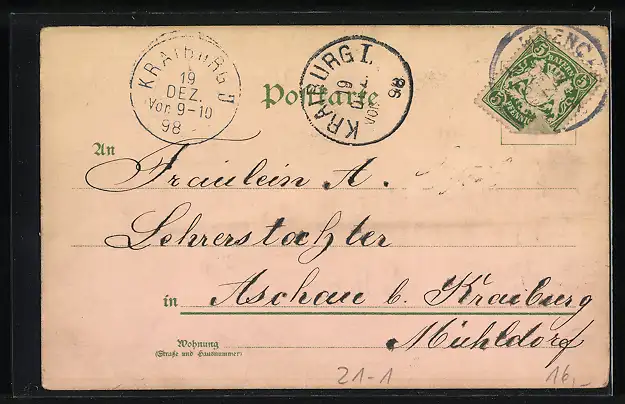 KRAIBURG
19
DEZ.
Vor. 9-10
98
KRAIBURG I.
19
98
BAYERN
5
5
Postkarte
An
Fräulein A.
Lehrerstochter
in Aschau b. Kraiburg
Mühldorf
Wohnung
(Straße und Hausnummer)
21-1
16,-